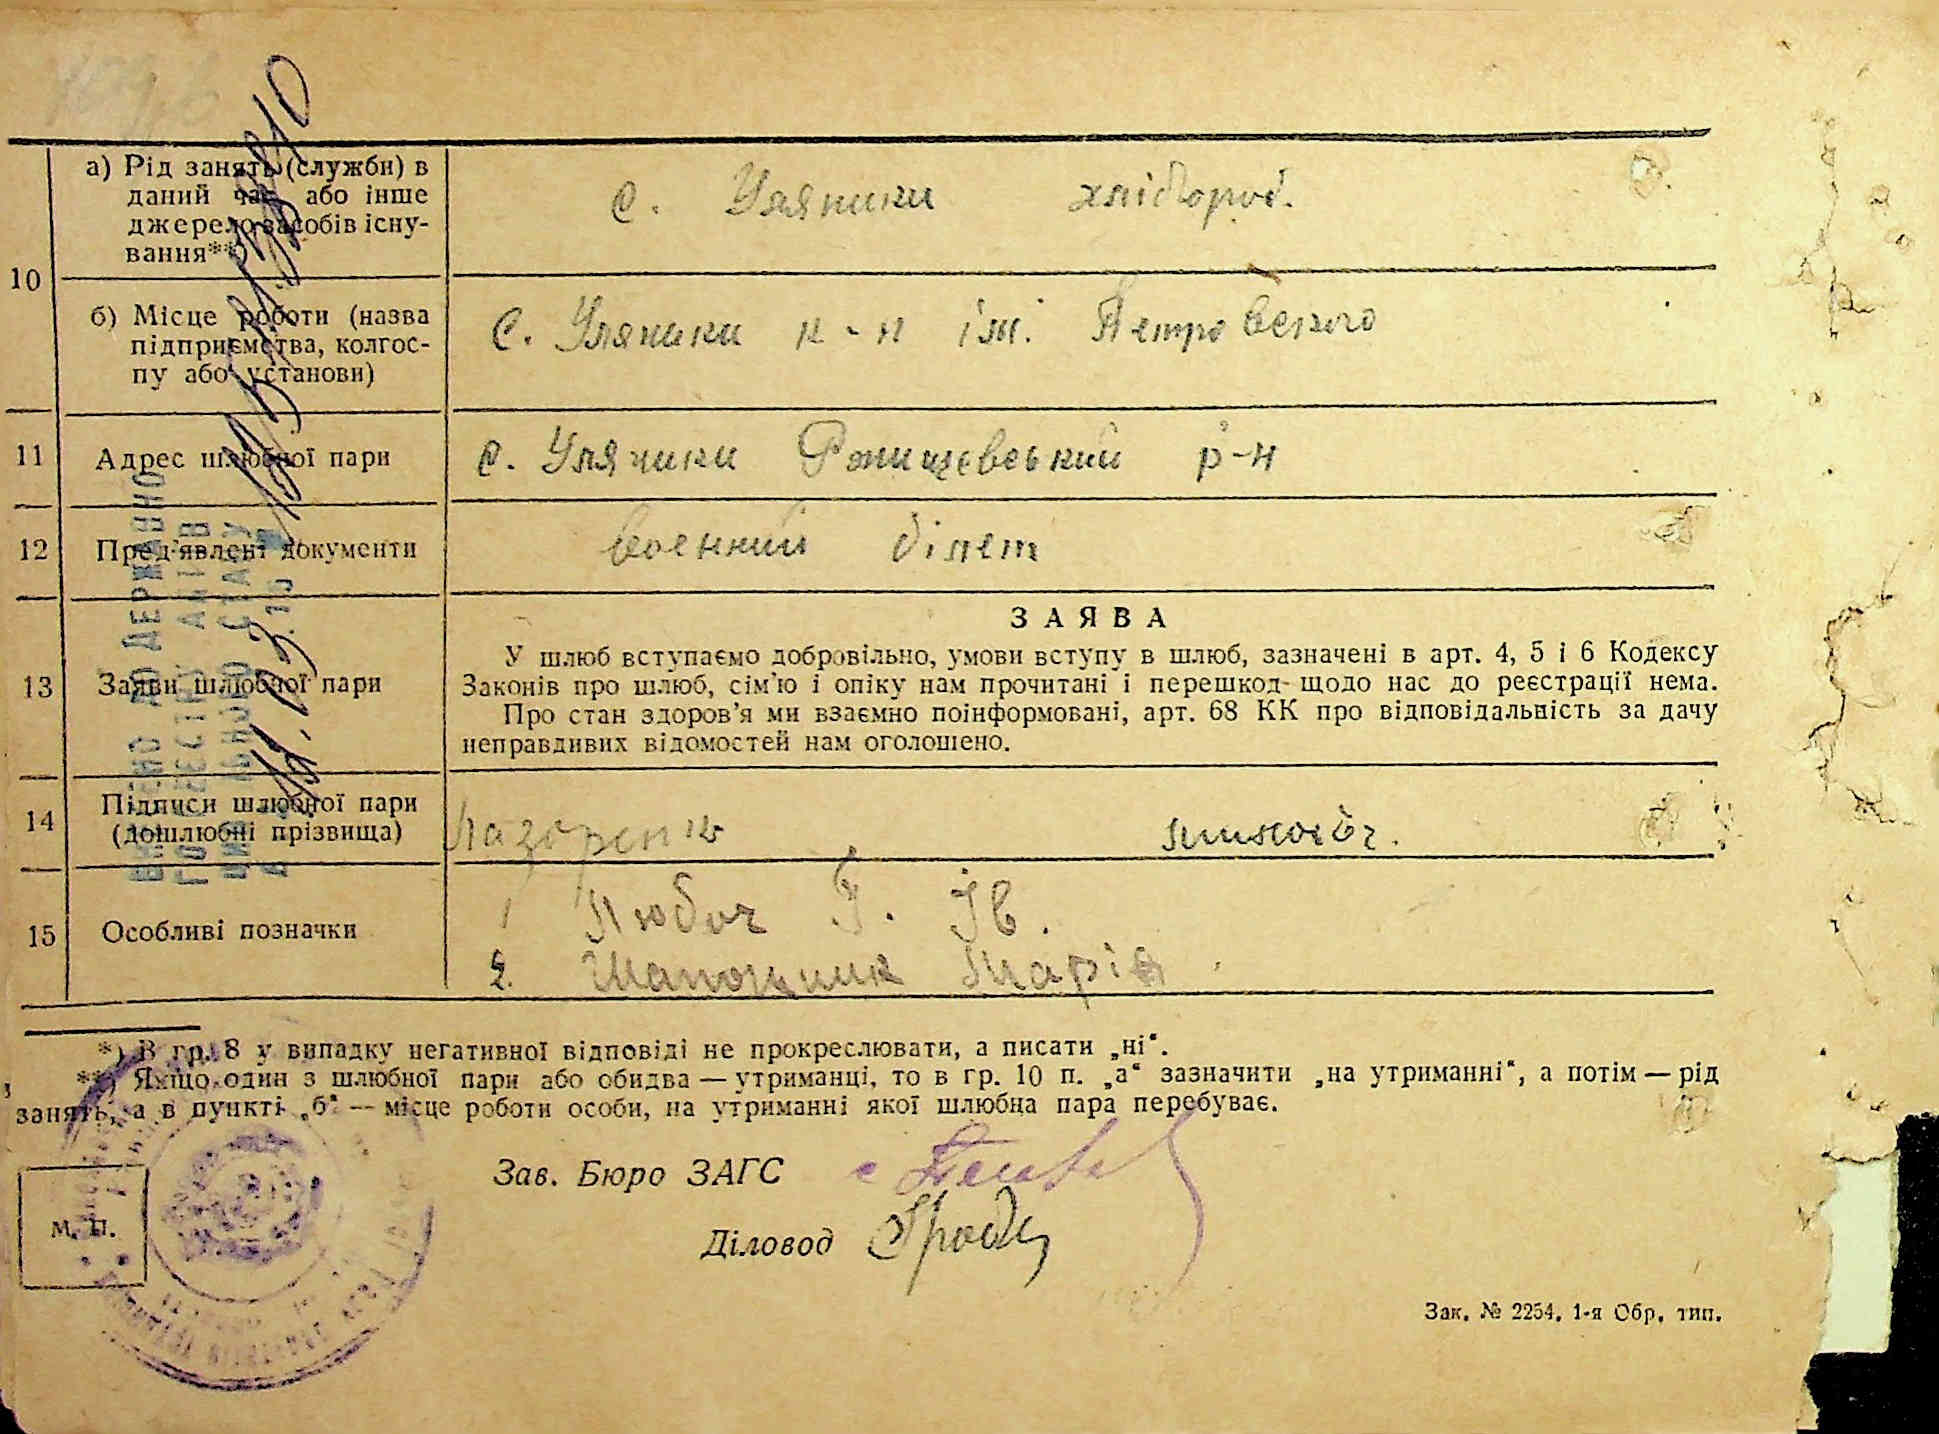 10
а) Рід занять (служби) в
даний час або інше
джерело засобів існу-
вання**)
с. Уляники хлібороб.
б) Місце роботи (назва
підприємства, колгос-
пу або установи)
с. Уляники к-п ім. Петровського
11
Адрес шлюбної пари
с. Уляники Рожищевський р-н
12
Пред'явлені документи
военний білет
13
Заяви шлюбної пари
ЗАЯВА
У шлюб вступаємо добровільно, умови вступу в шлюб, зазначені в арт. 4, 5 і 6 Кодексу
Законів про шлюб, сім'ю і опіку нам прочитані і перешкод щодо нас до реєстрації нема.
Про стан здоров'я ми взаємно поінформовані, арт. 68 КК про відповідальність за дачу
неправдивих відомостей нам оголошено.
14
Підписи шлюбної пари
(дошлюбні прізвища)
15
Особливі позначки
1
2. Марія
*) В гр. 8 у випадку негативної відповіді не прокреслювати, а писати „ні“.
**) Якщо один з шлюбної пари або обидва — утриманці, то в гр. 10 п. „а“ зазначити „на утриманні“, а потім — рід
занять, а в пункті „б“ — місце роботи особи, на утриманні якої шлюбна пара перебуває.
Зав. Бюро ЗАГС
М. П.
Діловод
Зак. № 2254. 1-я Обр. тип.
ВНЕСЕНО ДО ДЕРЖАВНО
ГО РЕЄСТРУ АКТІВ
ЦИВІЛЬНОГО СТАНУ